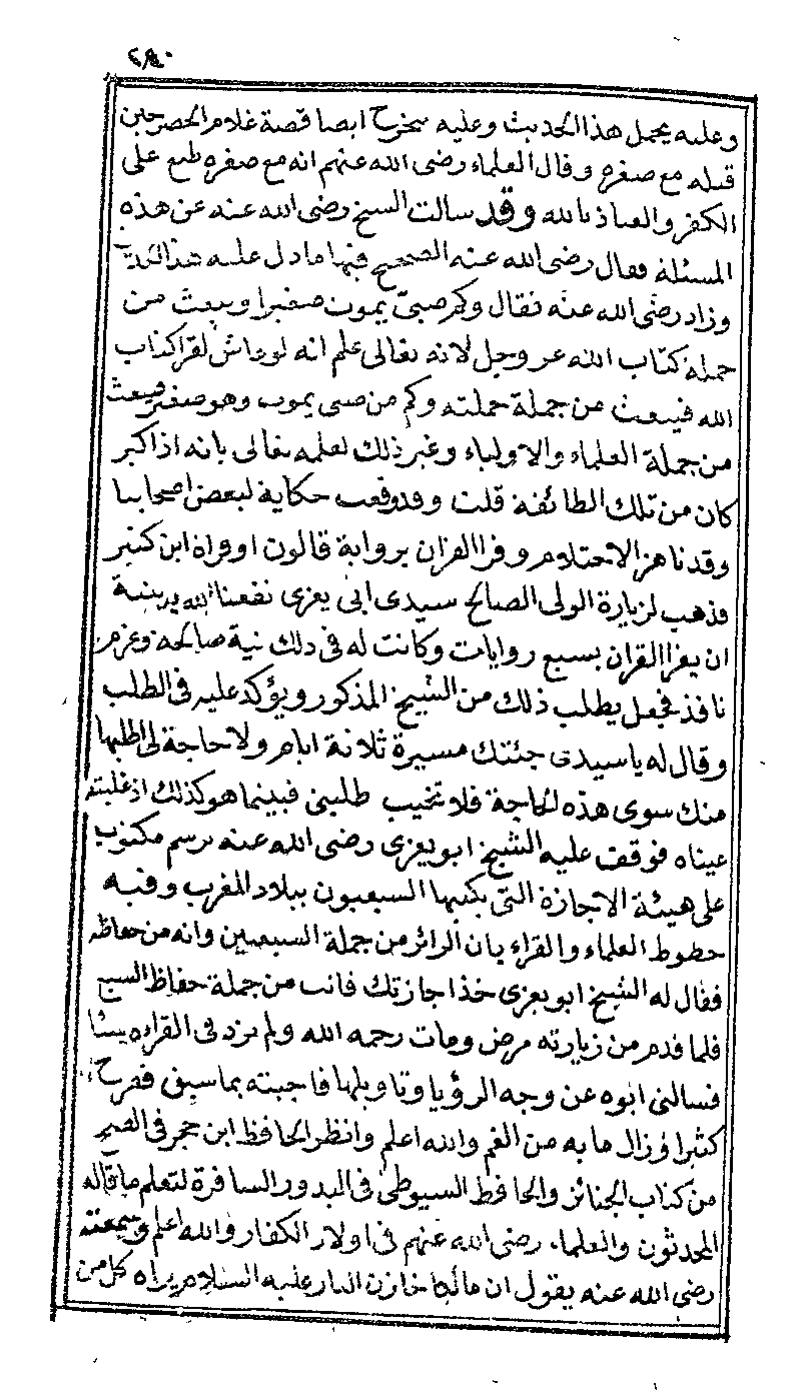 ٢٩٠
وعليه يحمل هذا الحديث وعليه يتخرج ايضا قصة غلام الخضر حين
قتله مع صغره وقال العلماء رضى الله عنهم انه مع صغره طبع على
الكفر والعياذ بالله وقد سالت الشيخ رضى الله عنه عن هذه
المسئلة فقال رضى الله عنه الصحيح فيها ما دل عليه هذا الحديث
وزاد رضى الله عنه فقال وكم صبىّ يموت صغيرا ويبعث من
حملة كتاب الله عز وجل لانه تعالى علم انه لو عاش لقرا كتاب
الله فيبعث من جملة حملته وكم من صبى يموت وهو صغير فيبعث
من جملة العلماء والاولياء وغير ذلك لعلمه تعالى بانه اذا كبر
كان من تلك الطائفة قلت وقد وقعت حكاية لبعض اصحابنا
وقد ناهز الاحتلام وقرا القران برواية قالون او قراة ابن كثير
فذهب لزيارة الولى الصالح سيدى ابى يعزى نفعنا الله به بنية
ان يقرا القران بسبع روايات وكانت له فى ذلك نية صالحة وعزم
نافذ فجعل يطلب ذلك من الشيخ المذكور ويؤكد عليه فى الطلب
وقال له يا سيدى جئتك مسيرة ثلاثة ايام ولا حاجة لى اطلبها
منك سوى هذه الحاجة فلا تخيب طلبتى فبينما هو كذلك اذ غلبته
عيناه فوقف عليه الشيخ ابو يعزى رضى الله عنه برسم مكتوب
على هيئة الاجازة التى يكتبها السبعيون ببلاد المغرب وفيه
خطوط العلماء والقراء بان الزائر من جملة السبعيين وانه من حفاظه
فقال له الشيخ ابو يعزى خذ اجازتك فانت من جملة حفاظ السبع
فلما قدم من زيارته مرض ومات رحمه الله ولم يزد فى القراءه شيئا
فسالنى ابوه عن وجه الرؤيا وتاويلها فاجبته بما سبق ففرح
كثيرا وزال ما به من الغم والله اعلم وانظر الحافظ ابن حجر فى الصبر
من كتاب الجنائز والحافظ السيوطى فى البدور السافرة لتعلم ما قاله
المحدثون والعلماء رضى الله عنهم فى اولاد الكفار والله اعلم وسمعته
رضى الله عنه يقول ان مالكا خازن النار عليه السلام يراه كل من